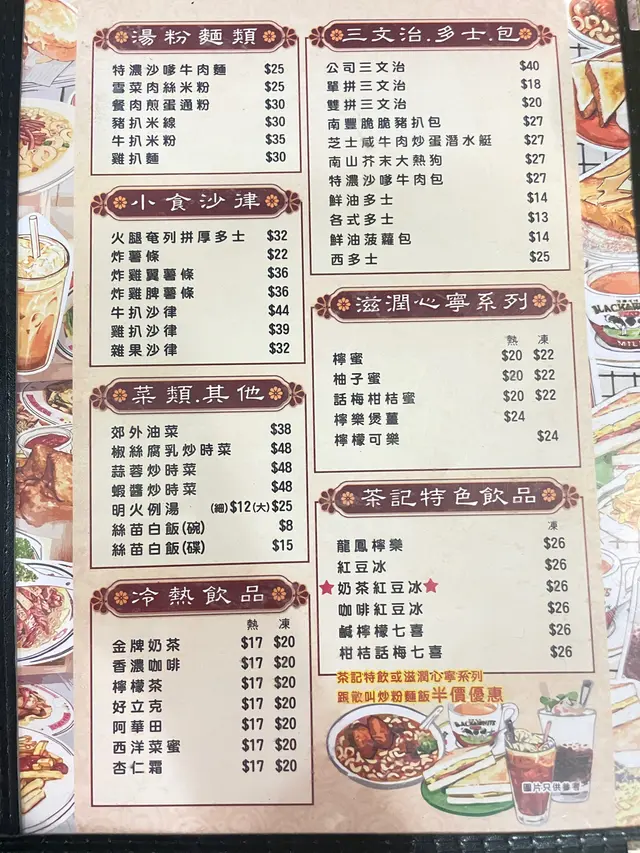 湯粉麵類
特濃沙嗲牛肉麵 $25
雪菜肉絲米粉 $25
餐肉煎蛋通粉 $30
豬扒米線 $30
牛扒米粉 $35
雞扒麵 $30
小食沙律
火腿奄列拼厚多士 $32
炸薯條 $22
炸雞翼薯條 $36
炸雞脾薯條 $36
牛扒沙律 $44
雞扒沙律 $39
雜果沙律 $32
菜類.其他
郊外油菜 $38
椒絲腐乳炒時菜 $48
蒜蓉炒時菜 $48
蝦醬炒時菜 $48
明火例湯 (細)$12(大)$25
絲苗白飯(碗) $8
絲苗白飯(碟) $15
冷熱飲品
熱 凍
金牌奶茶 $17 $20
香濃咖啡 $17 $20
檸檬茶 $17 $20
好立克 $17 $20
阿華田 $17 $20
西洋菜蜜 $17 $20
杏仁霜 $17 $20
三文治.多士.包
公司三文治 $40
單拼三文治 $18
雙拼三文治 $20
南豐脆脆豬扒包 $27
芝士咸牛肉炒蛋潛水艇 $27
南山芥末大熱狗 $27
特濃沙嗲牛肉包 $27
鮮油多士 $14
各式多士 $13
鮮油菠蘿包 $14
西多士 $25
滋潤心寧系列
熱 凍
檸蜜 $20 $22
柚子蜜 $20 $22
話梅柑桔蜜 $20 $22
檸樂煲薑 $24
檸檬可樂 $24
茶記特色飲品
凍
龍鳳檸樂 $26
紅豆冰 $26
奶茶紅豆冰 $26
咖啡紅豆冰 $26
鹹檸檬七喜 $26
柑桔話梅七喜 $26
茶記特飲或滋潤心寧系列
跟歡叫炒粉麵飯半價優惠
BLACK&WHITE
圖片只供參考